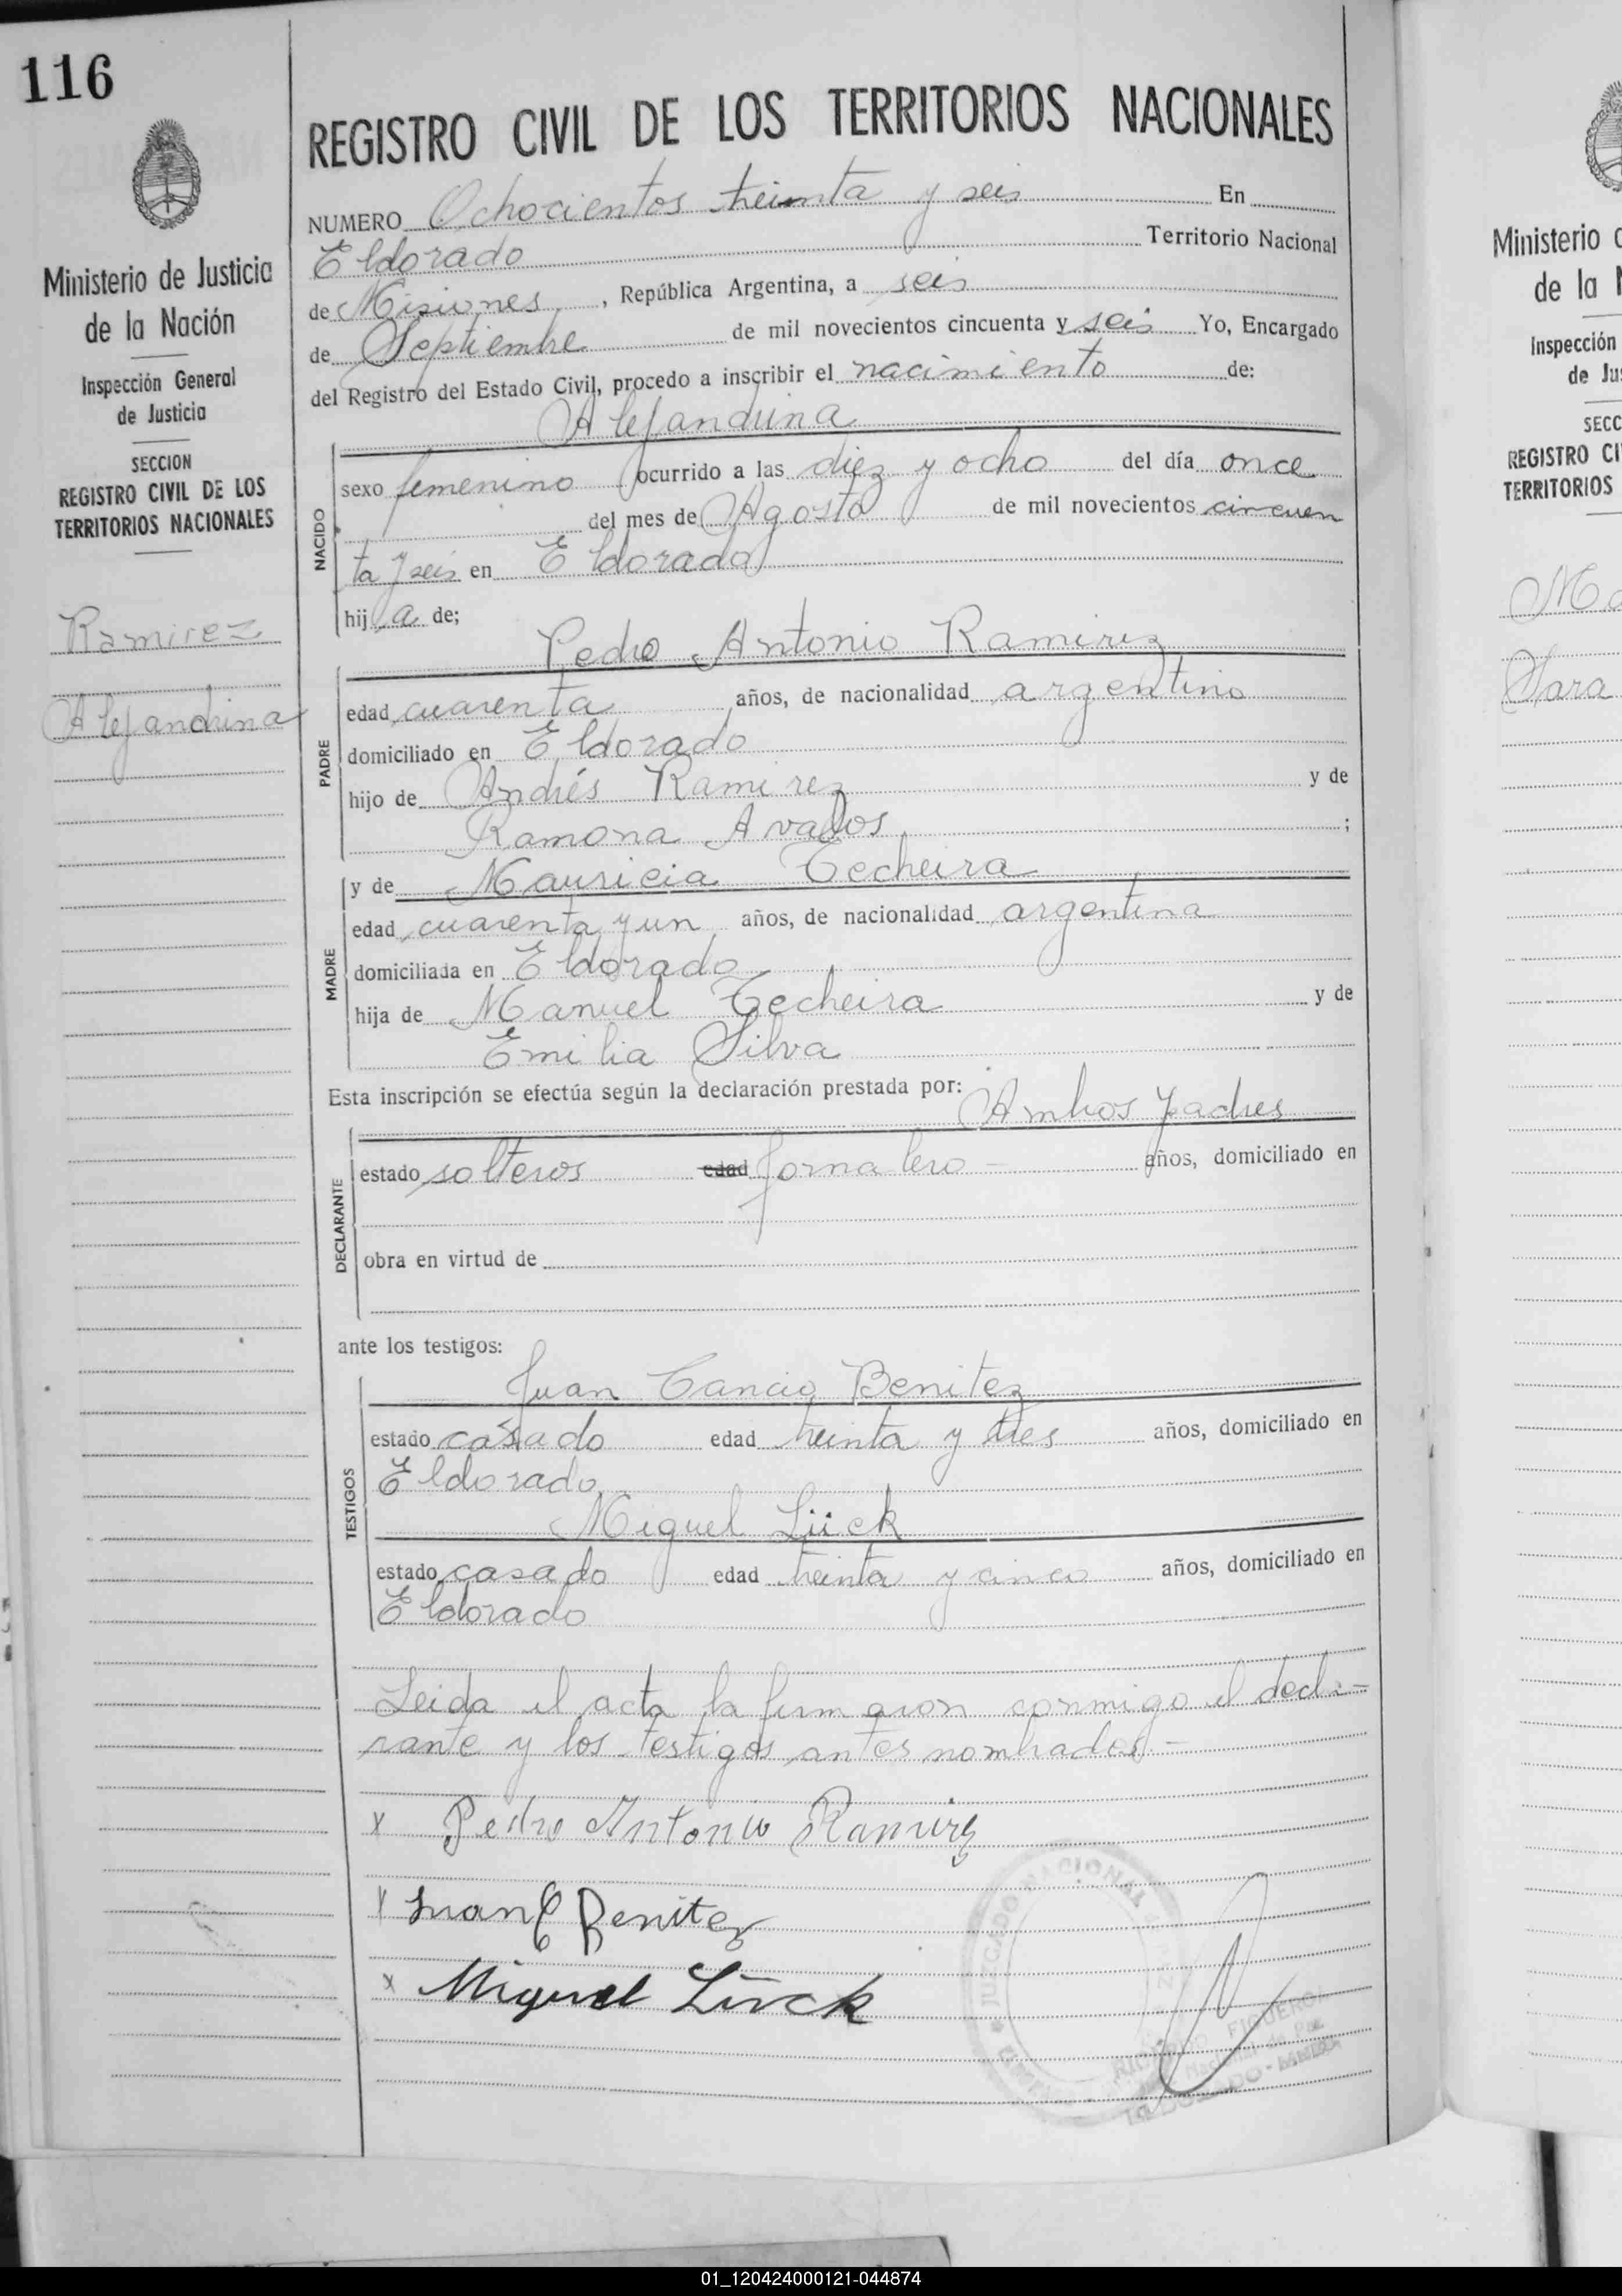 116
Ministerio de Justicia
de la Nación
Inspección General
de Justicia
SECCION
REGISTRO CIVIL DE LOS
TERRITORIOS NACIONALES
Ramirez
Alejandrina
REGISTRO CIVIL DE LOS TERRITORIOS NACIONALES
NUMERO Ochocientos treinta y seis En
Eldorado Territorio Nacional
de Misiones, República Argentina, a seis
de Septiembre de mil novecientos cincuenta y seis Yo, Encargado
del Registro del Estado Civil, procedo a inscribir el nacimiento de:
Alejandrina
NACIDO
sexo femenino ocurrido a las diez y ocho del día once
del mes de Agosto de mil novecientos cincuen
ta y seis en Eldorado
hija de;
Pedro Antonio Ramirez
PADRE
edad cuarenta años, de nacionalidad argentino
domiciliado en Eldorado
hijo de Andrés Ramirez y de
Ramona Avalos ;
MADRE
y de Mauricia Techeira
edad cuarenta y un años, de nacionalidad argentina
domiciliada en Eldorado
hija de Manuel Techeira y de
Emilia Silva
Esta inscripción se efectúa según la declaración prestada por: Ambos padres
DECLARANTE
estado solteros edad Jornalero - años, domiciliado en
obra en virtud de
ante los testigos:
TESTIGOS
Juan Cancio Benitez
estado casado edad treinta y tres años, domiciliado en
Eldorado
Miguel Lück
estado casado edad treinta y cinco años, domiciliado en
Eldorado
Leida el acta la firmaron conmigo el decla-
rante y los testigos antes nombrados -
x Pedro Antonio Ramirez
x Juan C Benitez
x Miguel Lück
JUZGADO NACIONAL
FIGUERO
Ministerio
de la
Inspección
de Jus
SECC
REGISTRO CI
TERRITORIOS
Sara
01_120424000121-044874